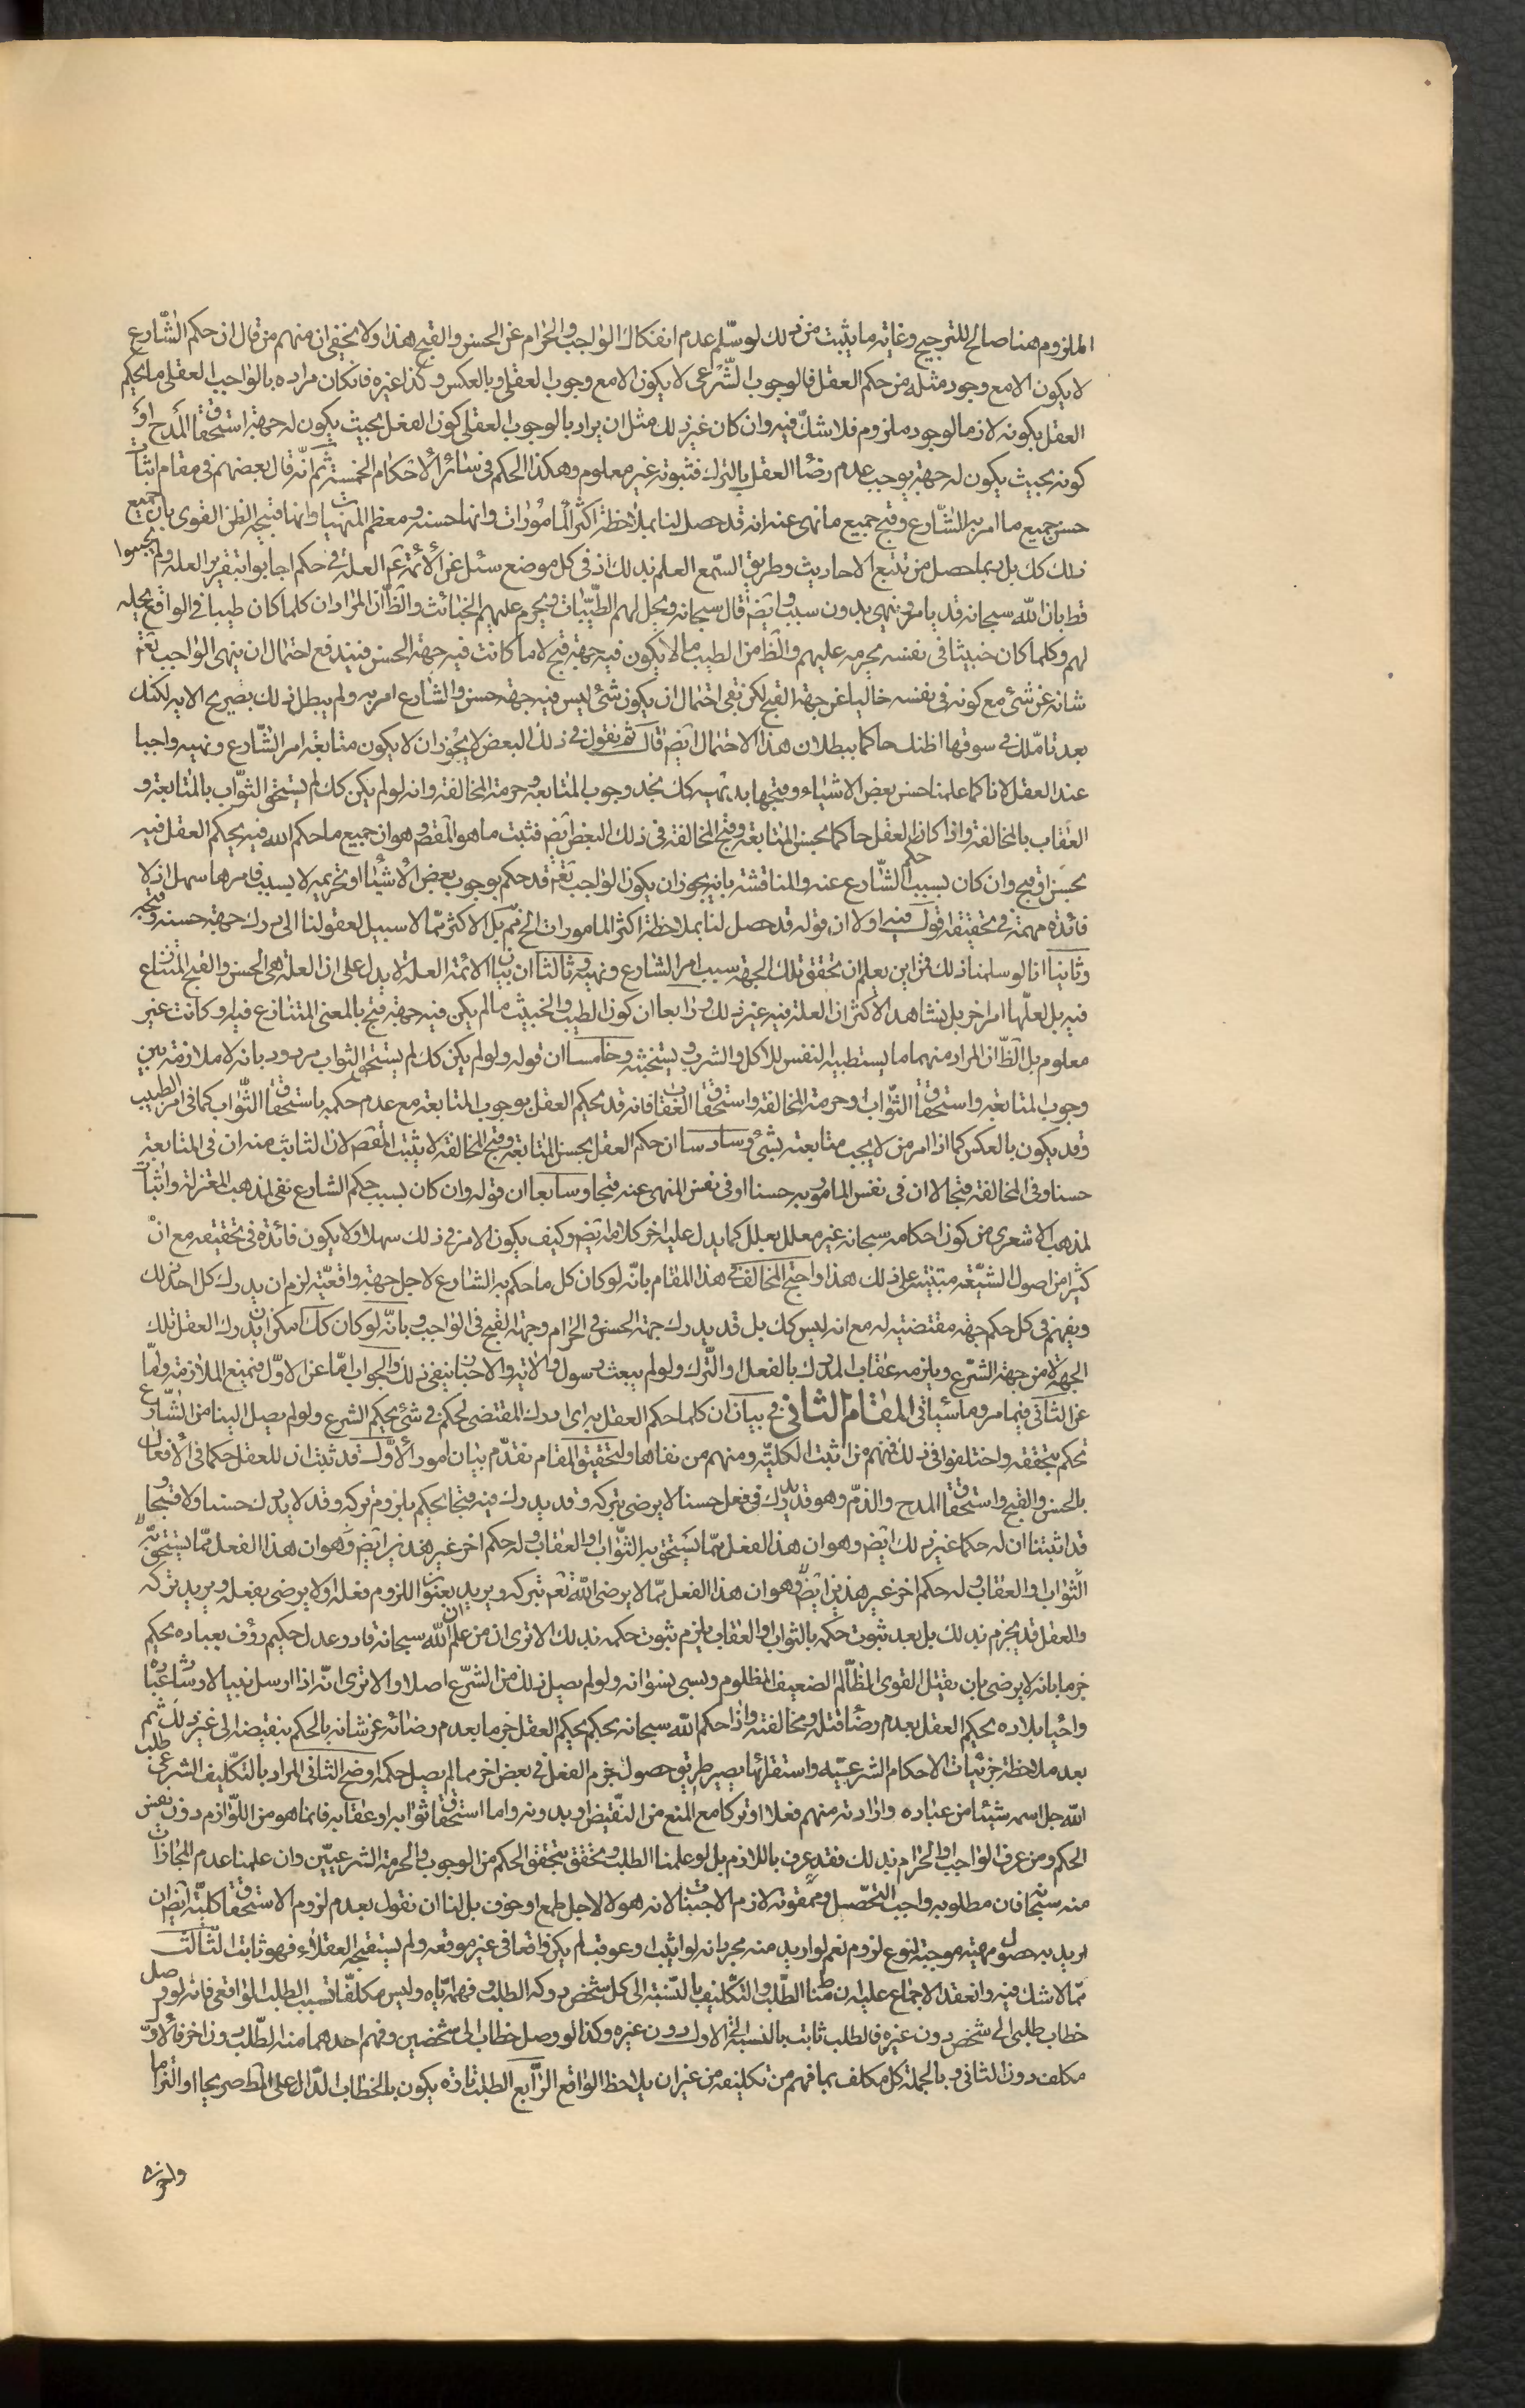 الملزوم هنا صالح للترجيح وغاية ما يثبت من ذلك لو سلّم عدم انفكاك الواجب والحرام عن الحسن والقبح هذا ولا يخفى ان منهم من قال ان حكم الشّارع
لا يكون الا مع وجود مثله من حكم العقل فالوجوب الشّرعى لا يكون الا مع وجوب العقلى وبالعكس وكذا غيره فان كان مراده بالواجب العقلى ما يحكم
العقل بكونه لازما لوجود ملزوم فلا شكّ فيه وان كان غير ذلك مثل ان يراد بالوجوب العقلى كون الفعل بحيث يكون له جهة استحقاق المدح او
كونه بحيث يكون له جهة يوجب عدم رضاء العقل بالترك فثبوته غير معلوم وهكذا الحكم فى سائر الاحكام الخمسة ثم انّه قال بعضهم فى مقام اثبات
حسن جميع ما امر به الشّارع وقبح جميع ما نهى عنه انه قد حصل لنا بملاحظة اكثر المأمورات وانها حسنة ومعظم المنهيات وانها قبيحة الظن القوى بان جميع
ذلك كك بل ربما حصل من تتبع الاحاديث وطريق السّمع العلم بذلك اذ فى كل موضع سئل عن الأئمة ع العلة فى حكم اجابوا بتقرير العلة ولم يجيبوا
قط بان الله سبحانه قد يامر وينهى بدون سبب وايضا قال سبحانه ويحل لهم الطّيّبات ويحرم عليهم الخبائث والظّ ان المراد ان كلما كان طيبا فى الواقع يحله
لهم وكلما كان خبيثا فى نفسه يحرمه عليهم والظ من الطيب ما لا يكون فيه جهة قبح لا ما كانت فيه جهة الحسن فيندفع احتمال ان ينهى الواجب تعم
شانه عن شئ مع كونه فى نفسه خاليا عن جهة القبح لكن بقى احتمال ان يكون شئ ليس فيه جهة حسن والشارع امر به ولم يبطل ذلك بصريح الاية لكنك
بعد تأملك فى سوقها اظنك حاكما ببطلان هذا الاحتمال ايضا قال ثم نقول فى ذلك البعض لا يجوز ان لا يكون متابعة امر الشّارع ونهيه واجبا
عند العقل لانا كما علمنا حسن بعض الاشياء وقبحها بديهة كك نجد وجوب المتابعة وحرمة المخالفة وانه لو لم يكن كك لم يستحق الثّواب بالمتابعة و
العقاب بالمخالفة واذا كان العقل حاكما بحسن المتابعة وقبح المخالفة فى ذلك البعض ايضا فثبت ما هو المقصو وهو ان جميع ما حكم الله فيه يحكم العقل فيه
بحسن او قبح وان كان بسبب حكم الشّارع عنه والمناقشة بانه يجوز ان يكون الواجب تعم قد حكم بوجوب بعض الاشياء او تحريمه لا بسبب فامرها سهل اذ لا
فائدة مهمة فى تحقيقه اقول فيه اولا ان قوله قد حصل لنا بملاحظة اكثر المامورات الخ مم بل الاكثر مما لا سبيل لعقولنا الى درك جهة حسنه وقبحه
وثانيا انا لو سلمنا ذلك فمن اين يعلم ان تحقق تلك الجهة سبب امر الشارع ونهيه وثالثا ان بيان الائمة العلة لا يدل على ان العلة هى الحسن والقبح المتنازع
فيه بل لعلها امر اخر بل نشاهد الاكثر ان العلة فيه غير ذلك ورابعا ان كون الطيب والخبيث ما لم يكن فيه جهة قبح بالمعنى المتنازع فيه او كانت غير
معلوم بل الظّ ان المراد منهما ما يستطيبه النفس للاكل والشرب ويستخبثه وخامسا ان قوله ولو لم يكن كك لم يستحق الثواب مردود بانه لا ملازمة بين
وجوب المتابعة واستحقاق الثّواب وحرمة المخالفة واستحقاق العقاب فانه قد يحكم العقل بوجوب المتابعة مع عدم حكمه باستحقاق الثّواب كما فى امر الطبيب
وقد يكون بالعكس كما اذا امر من لا يجب متابعته بشئ وسادسا ان حكم العقل بحسن المتابعة وقبح المخالفة لا يثبت المقصو لان الثابت منه ان فى المتابعة
حسنا وفى المخالفة قبحا لا ان فى نفس المامور به حسنا او فى نفس المنهى عنه قبحا وسابعا ان قوله وان كان بسبب حكم الشارع نفى لمذهب المعتزلة واثبات
لمذهب الاشعرى من كون احكامه سبحانه غير معلل بعلل كما يدل عليه اخر كلامه ايضا وكيف يكون الامر فى ذلك سهلا ولا يكون فائدة فى تحقيقه مع ان
كثيرا من اصول الشّيعة مبتنية على ذلك هذا واحتج المخالف فى هذا المقام بانّه لو كان كل ما حكم به الشارع لاجل جهة واقعيّة لزم ان يدرك كل احد ذلك
ويفهم فى كل حكم جهة مقتضية له مع انه ليس كك بل قد يدرك جهة الحسن فى الحرام وجهة القبح فى الواجب وبانّه لو كان كك امكن ان يدرك العقل تلك
الجهة لا من جهة الشّرع ويلزمه عقاب المدرك بالفعل او التّرك ولو لم يبعث رسول والاية والاخبار ينفى ذلك والجواب امّا عن الاوّل فبمنع الملازمة وامّا
عن الثانى فبما مر وما سيأتى المقام الثانى فى بيان ان كلما حكم العقل به اى ادرك المقتضى لحكم فى شئ يحكم الشرع ولو لم يصل الينا من الشّارع
نحكم بتحققه واختلفوا فى ذلك فمنهم من اثبت الكلية ومنهم من نفاها ولتحقيق المقام نقدّم بيان امور الأوّل قد ثبت ان للعقل حكما فى الافعال
بالحسن والقبح واستحقاق المدح والذمّ وهو قد يدرك فى فعل حسنا لا يرضى بتركه وقد يدرك فيه قبحا يحكم بلزوم تركه وقد لا يدرك حسنا ولا قبيحا و
قد اثبتنا ان له حكما غير ذلك ايضا وهو ان هذا الفعل ممّا يستحق به الثّواب او العقاب وله حكم اخر غير هذين ايضا وهو ان هذا الفعل ممّا يستحق به
الثّواب او العقاب وله حكم اخر غير هذين ايضا وهو ان هذا الفعل ممّا لا يرضى الله تعم بتركه ويريد بعنوان اللزوم فعله او لا يرضى بفعله ويريد تركه
والعقل قد يجزم بذلك بل بعد ثبوت حكمه بالثواب او العقاب يلزم ثبوت حكمه بذلك الا ترى ان من علم ان الله سبحانه قادر وعدل حكيم رؤف بعباده يحكم
جزما بانه لا يرضى بان يقتل القوى الظّالم الضعيف المظلوم ويسبى نسوانه ولو لم يصل ذلك من الشّرع اصلا والا ترى انّه اذا ارسل نبيا لارشاد عباده
واحياء بلاده يحكم العقل بعدم رضاء قتله ومخالفته واذا حكم الله سبحانه بحكم يحكم العقل جزما بعدم رضائه عز شانه بالحكم بنقيضه الى غير ذلك ثم
بعد ملاحظة جزئيات الاحكام الشرعيّة واستقرائها يصير طريق حصول جزم العقل فى بعض اخر مما لم يصل حكمه اوضح الثانى المراد بالتّكليف الشرعى طلب
الله جل اسمه شيئا من عباده وارادته منهم فعلا او تركا مع المنع من النّقيض او بدونه واما استحقاق ثوابه او عقابه فانما هو من اللّوازم دون نفس
الحكم ومن عرف الواجب او الحرام بذلك فقد عرف باللازم بل لو علمنا الطلب وتحقق يتحقق الحكم من الوجوب والحرمة الشرعيّين وان علمنا عدم المجازات
منه سبحانه فان مطلوبه واجب التحصيل وممقوته لازم الاجتناب لانه هو لا لاجل طمع او خوف بل لنا ان نقول بعدم لزوم الاستحقاق كلّيّة ايضا ان
اريد به حصول مهية موجبة لنوع لزوم نعم لو اريد منه مجرد انه لو اثيب او عوقب لم يكن واقعا فى غير موقعه ولم يستقبحه العقلاء فهو ثابت الثّالث
ممّا لا شك فيه وانعقد الاجماع عليه ان مناط الطّلب والتكليف بالنّسبة الى كل شخص دركه الطلب وفهمه ايّاه وليس مكلفا بسبب الطلب الواقعى فانه لو وصل
خطاب طلبى الى شخص دون غيره فالطلب ثابت بالنسبة الى الاول دون غيره وكذا لو وصل خطاب الى شخصين وفهم احدهما منه الطّلب دون اخر فالاوّل
مكلف دون الثانى وبالجملة كل مكلف بما فهم من تكليفه من غير ان يلاحظ الواقع الرّابع الطلب تارة يكون بالخطاب الدّال على الط صريحا او التزاما
واخرى